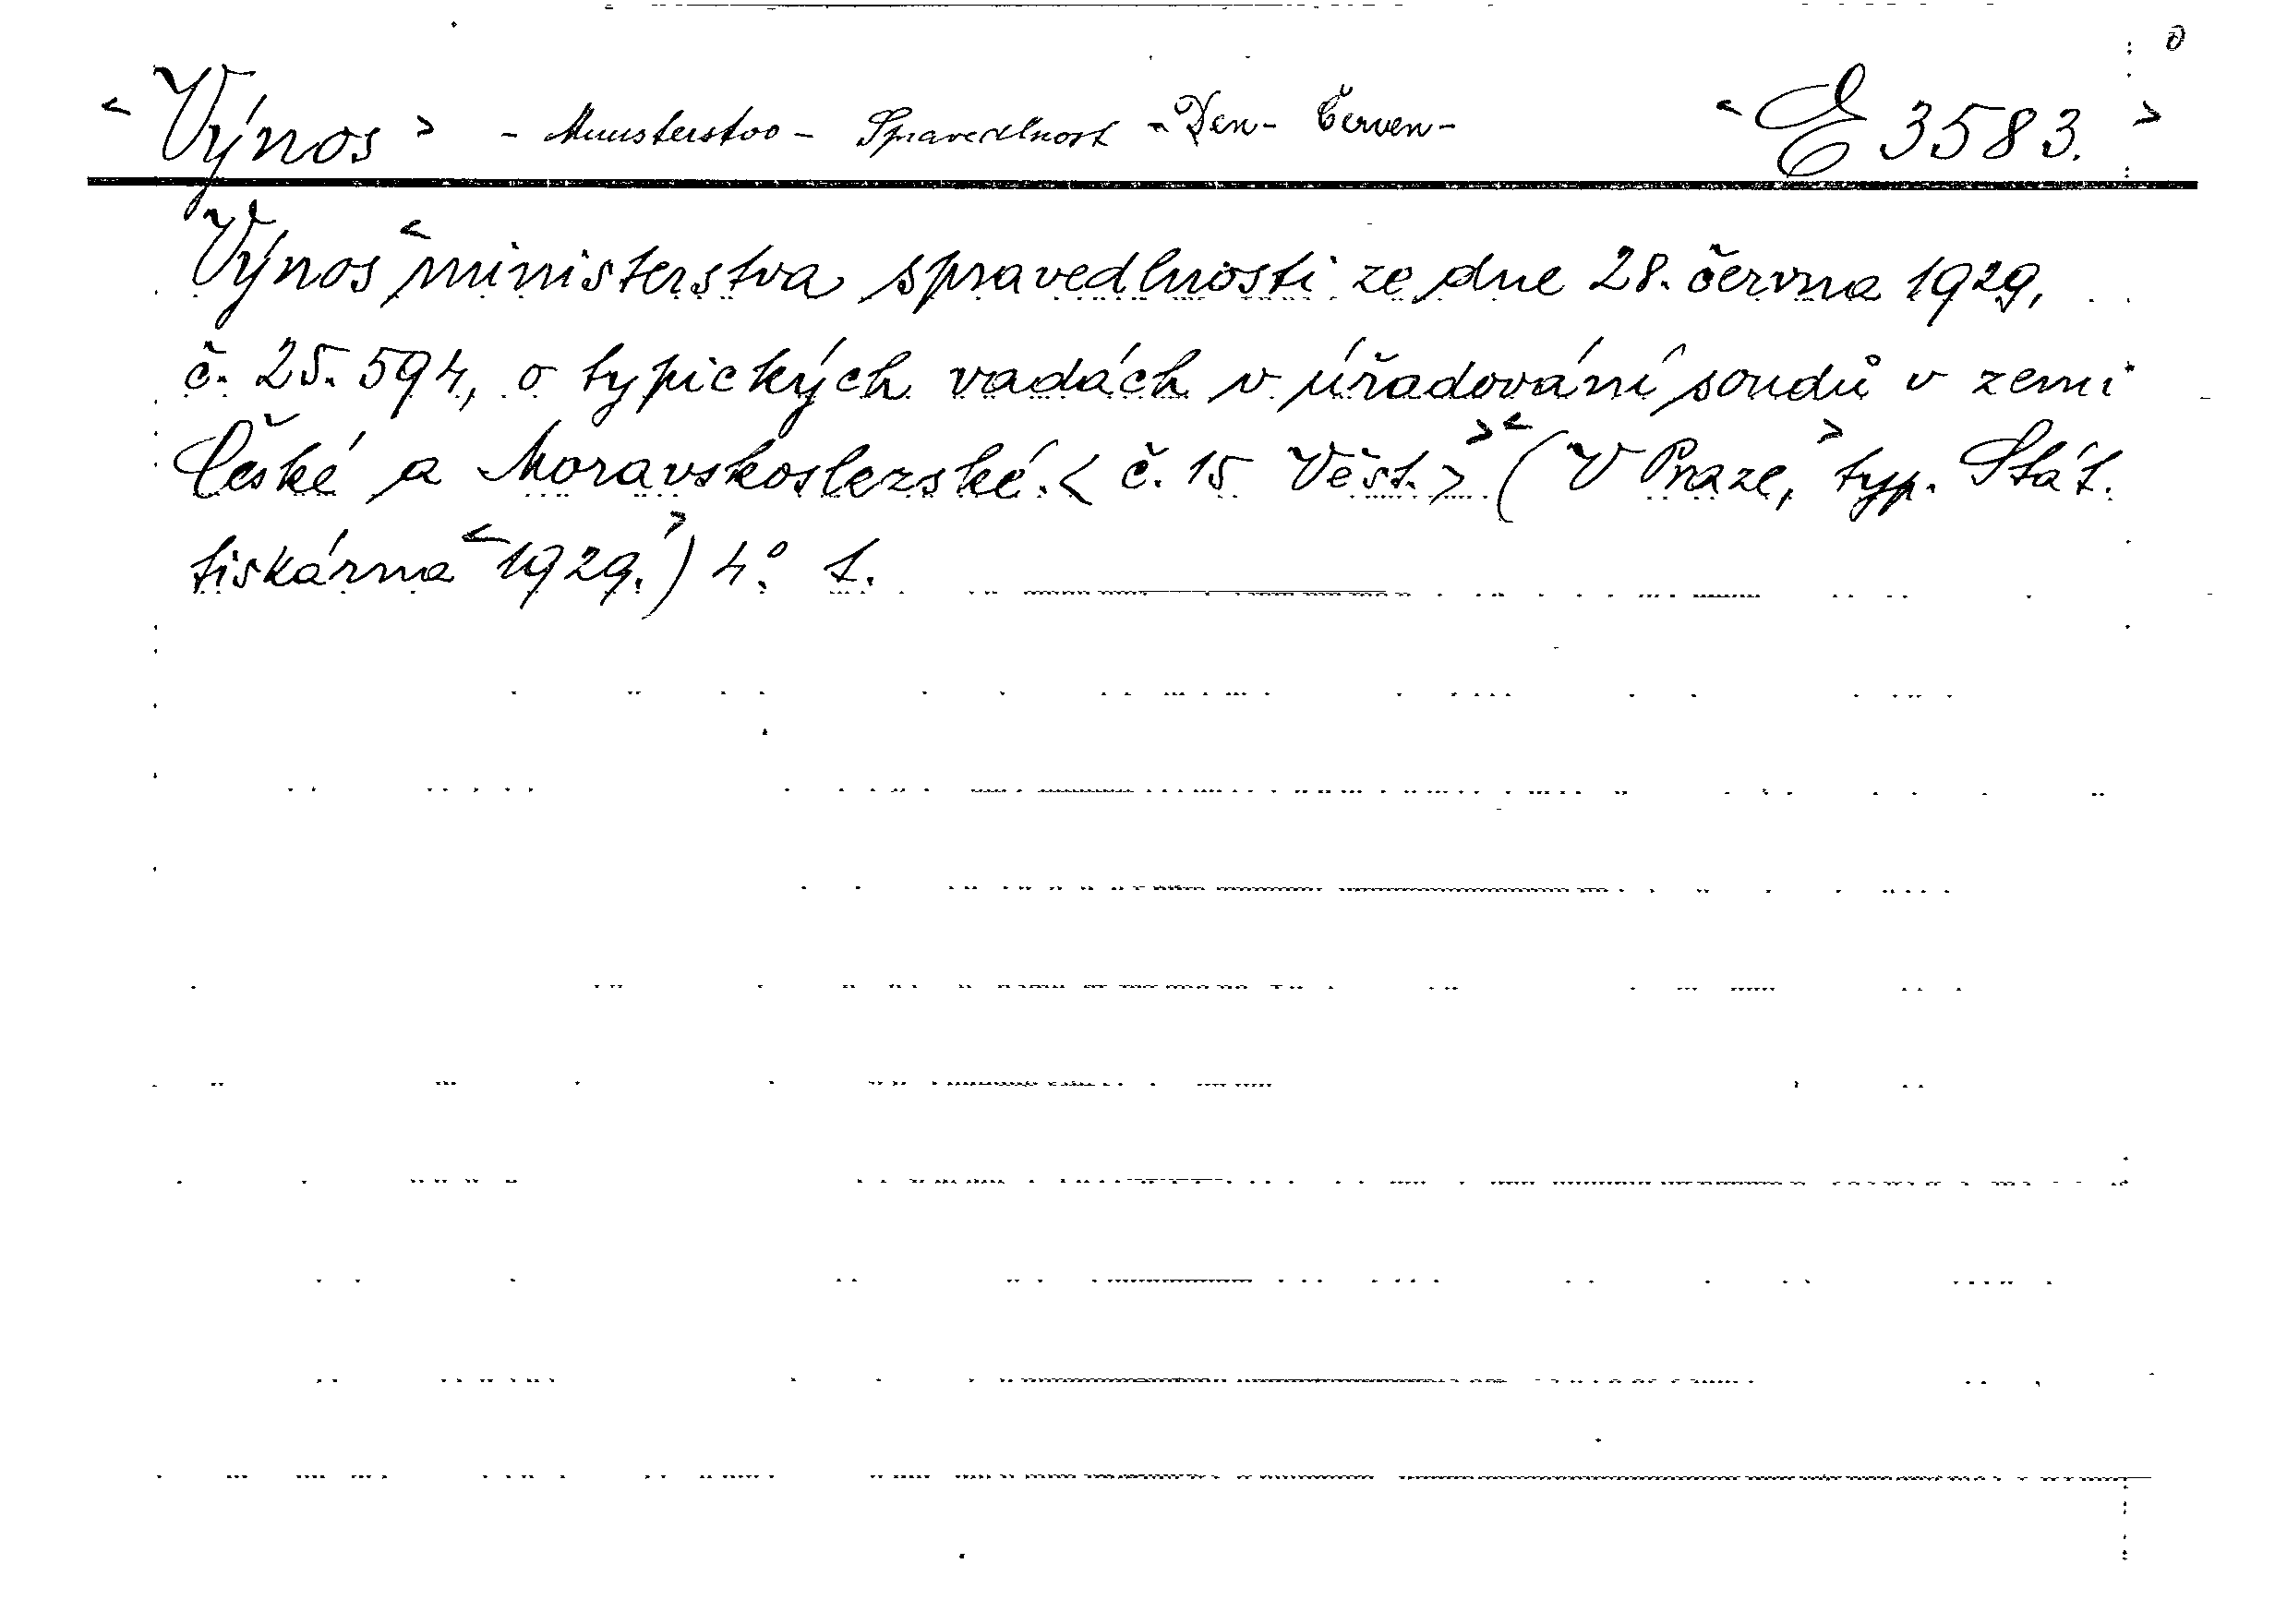 <Výnos> - Ministerstvo - Spravedlnost - Den - Červen - <E 3583.>
Výnos <ministerstva spravedlnosti ze dne 28. června 1929,
č. 25.594, o typických vadách v úřadování soudů v zemi
České a Moravskoslezské. < č. 15 Věst. >> <(V Praze,> typ. Stát.
tiskárna <1929.>) 4°. 1.